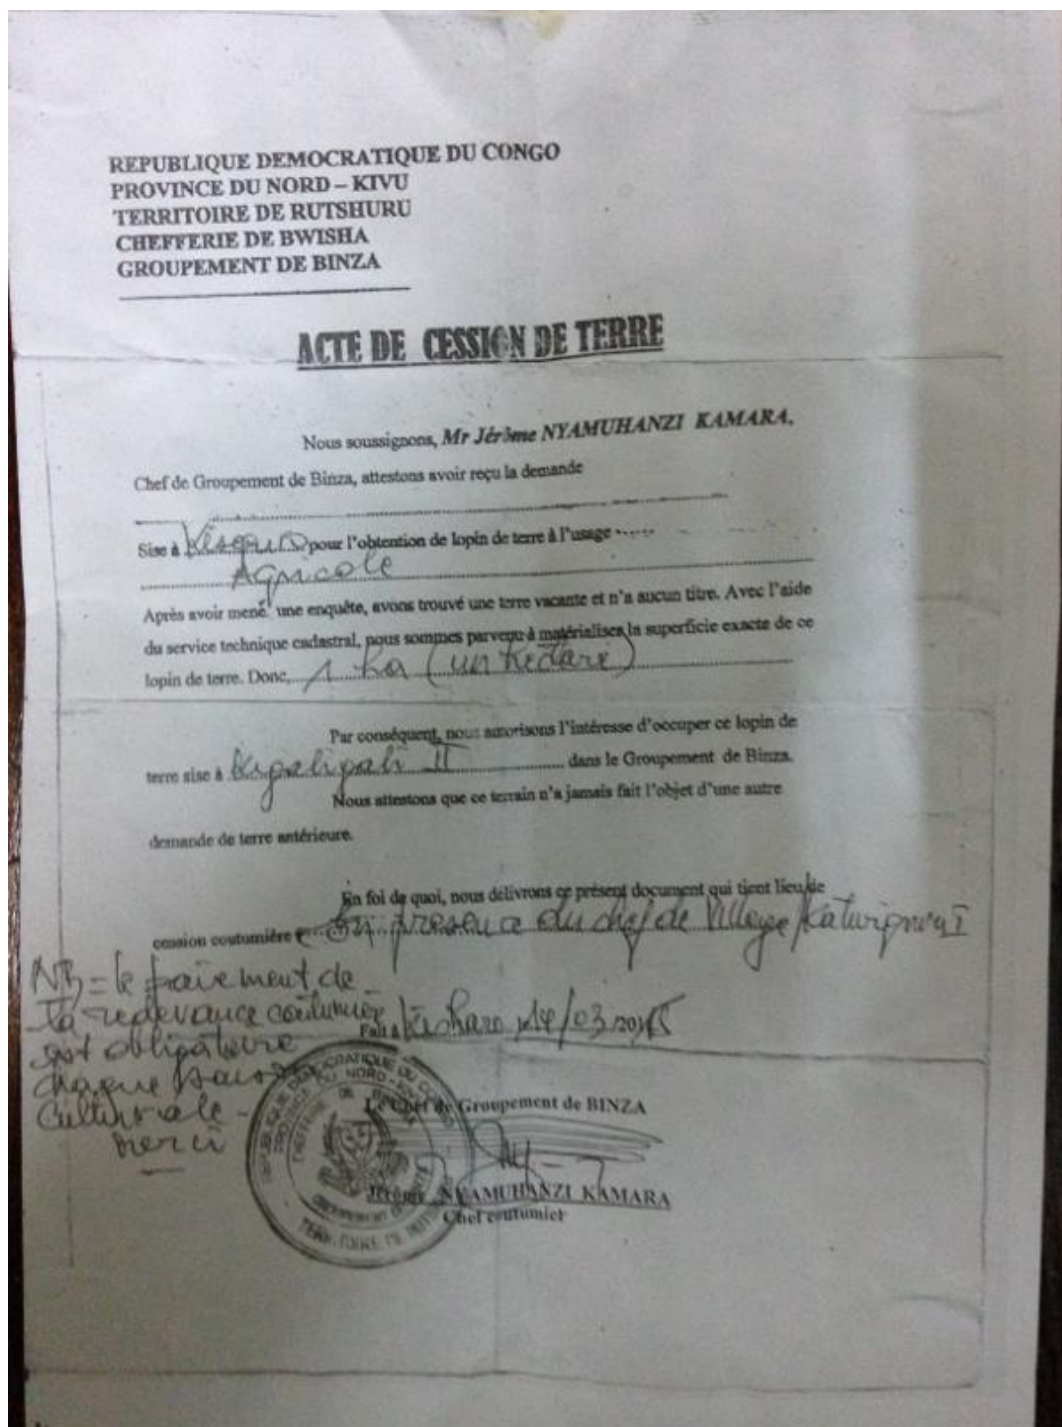 REPUBLIQUE DEMOCRATIQUE DU CONGO
PROVINCE DU NORD – KIVU
TERRITOIRE DE RUTSHURU
CHEFFERIE DE BWISHA
GROUPEMENT DE BINZA
ACTE DE CESSION DE TERRE
Nous soussignons, Mr Jérôme NYAMUHANZI KAMARA,
Chef de Groupement de Binza, attestons avoir reçu la demande
Sise à pour l'obtention de lopin de terre à l'usage
Agricole
Après avoir mené une enquête, avons trouvé une terre vacante et n'a aucun titre. Avec l'aide
du service technique cadastral, nous sommes parvenu à matérialises la superficie exacte de ce
lopin de terre. Donc, 1 ha (un hectare)
Par conséquent, nous autorisons l'intéresse d'occuper ce lopin de
terre sise à Kigaligali II dans le Groupement de Binza.
Nous attestons que ce terrain n'a jamais fait l'objet d'une autre
demande de terre antérieure.
En foi de quoi, nous délivrons ce présent document qui tient lieu de
cession coutumière En presence du chef de Village
NB = le paiement de
la redevance coutumier
est obligatoire
chaque
Culturale -
merci
Fait à Kisharo 14/03/2015
Le Chef de Groupement de BINZA
Jérôme NYAMUHANZI KAMARA
Chef coutumier
REPUBLIQUE DEMOCRATIQUE DU CONGO
PROVINCE DU NORD-KIVU
TERRITOIRE DE RUTSHURU